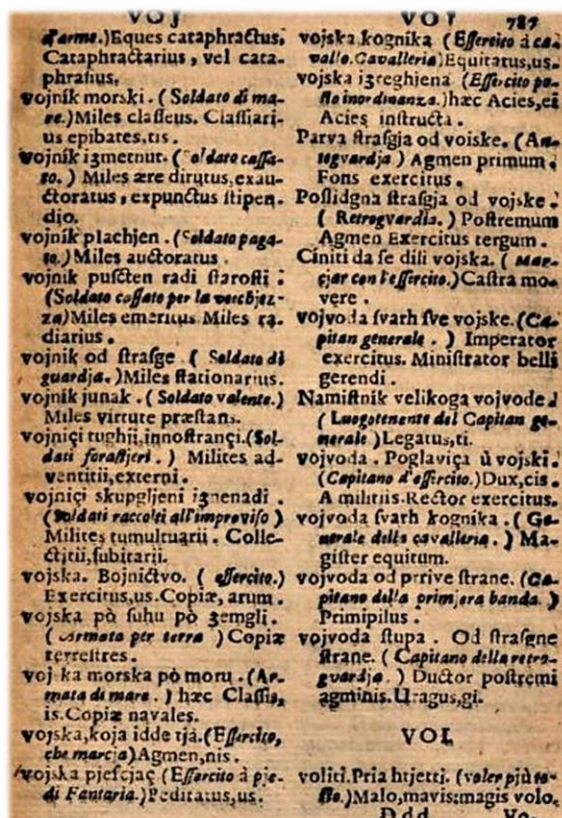 VOJ
d'arme.)Eques cataphractus,
Cataphractarius, vel cata-
phratius.
vojnik morski. (Soldato di ma-
re.)Miles classeus. Classiari-
us epibates,tis.
vojnik izmetnut. (Soldato cassa-
to.) Miles ære dirutus,exau-
ctoratus, expunctus stipen-
dio.
vojnik plachjen. (Soldato paga-
to.)Miles auctoratus.
vojnik puscten radi starosti.
(Soldato cassato per la vecchjez-
za)Miles emeritus Miles ra-
diarius.
vojnik od strasge. (Soldato di
guardja.)Miles stationarius.
vojnik junak. (Soldato valente.)
Miles virtute præstans.
vojniçi tughji,innostrançi.(Sol-
dati forastjeri.) Milites ad-
ventitii,externi.
vojniçi skupgljeni iznenadi.
(Soldati raccolti all'improviso)
Milites tumultuarii. Colle-
ctitii,subitarii.
vojska. Bojnictvo. (essercito.)
Exercitus,us.Copiæ, arum.
vojska pò suhu pò zemgli.
(Armata per terra) Copiæ
terrestres.
voj ka morska pò moru. (Ar-
mata di mare.) hæc Classis,
is.Copiæ navales.
vojska,koja idde tja.(Essercito,
che marcja)Agmen,nis.
vojska pjescjaç (Essercito à pje-
di Fantaria.)Peditatus,us.
VOJ 787
vojska kognika (Essercito à ca-
vallo.Cavalleria)Equitatus,us.
vojska izreghjena (Essercito po-
sto inordinanza.)hæc Acies,ei
Acies instructa.
Parva strasgja od voiske. (An-
teguardja) Agmen primum.
Fons exercitus.
Poslidgna strasgja od vojske.
(Retroguardia.) Postremum
Agmen Exercitus tergum.
Ciniti da se dili vojska. (Mar-
cjar con l'essercito.)Castra mo-
vere.
vojvoda svarh sve vojske.(Ca-
pitan generale.) Imperator
exercitus. Ministrator belli
gerendi.
Namistnik velikoga vojvode.
(Luogotenente del Capitan ge-
nerale)Legatus,ti.
vojvoda. Poglaviça ù vojski.
(Capitano d'essercito.)Dux,cis.
A militiis.Rector exercitus.
vojvoda svarh kognika. (Ge-
nerale della cavalleria.) Ma-
gister equitum.
vojvoda od prrive strane. (Ca-
pitano della primjera banda.)
Primipilus.
vojvoda stupa. Od strasgne
strane. (Capitano della retro-
guardja.) Ductor postremi
agminis. Uragus,gi.
VOL
voliti.Pria htjetti. (voler pjù to-
sto.)Malo,mavis:magis volo.
Ddd Vo-